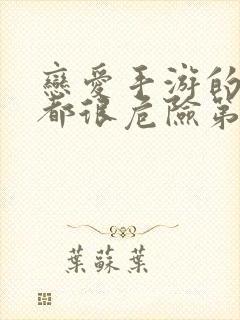 戀愛手游的
都很危險第
葉蘇葉